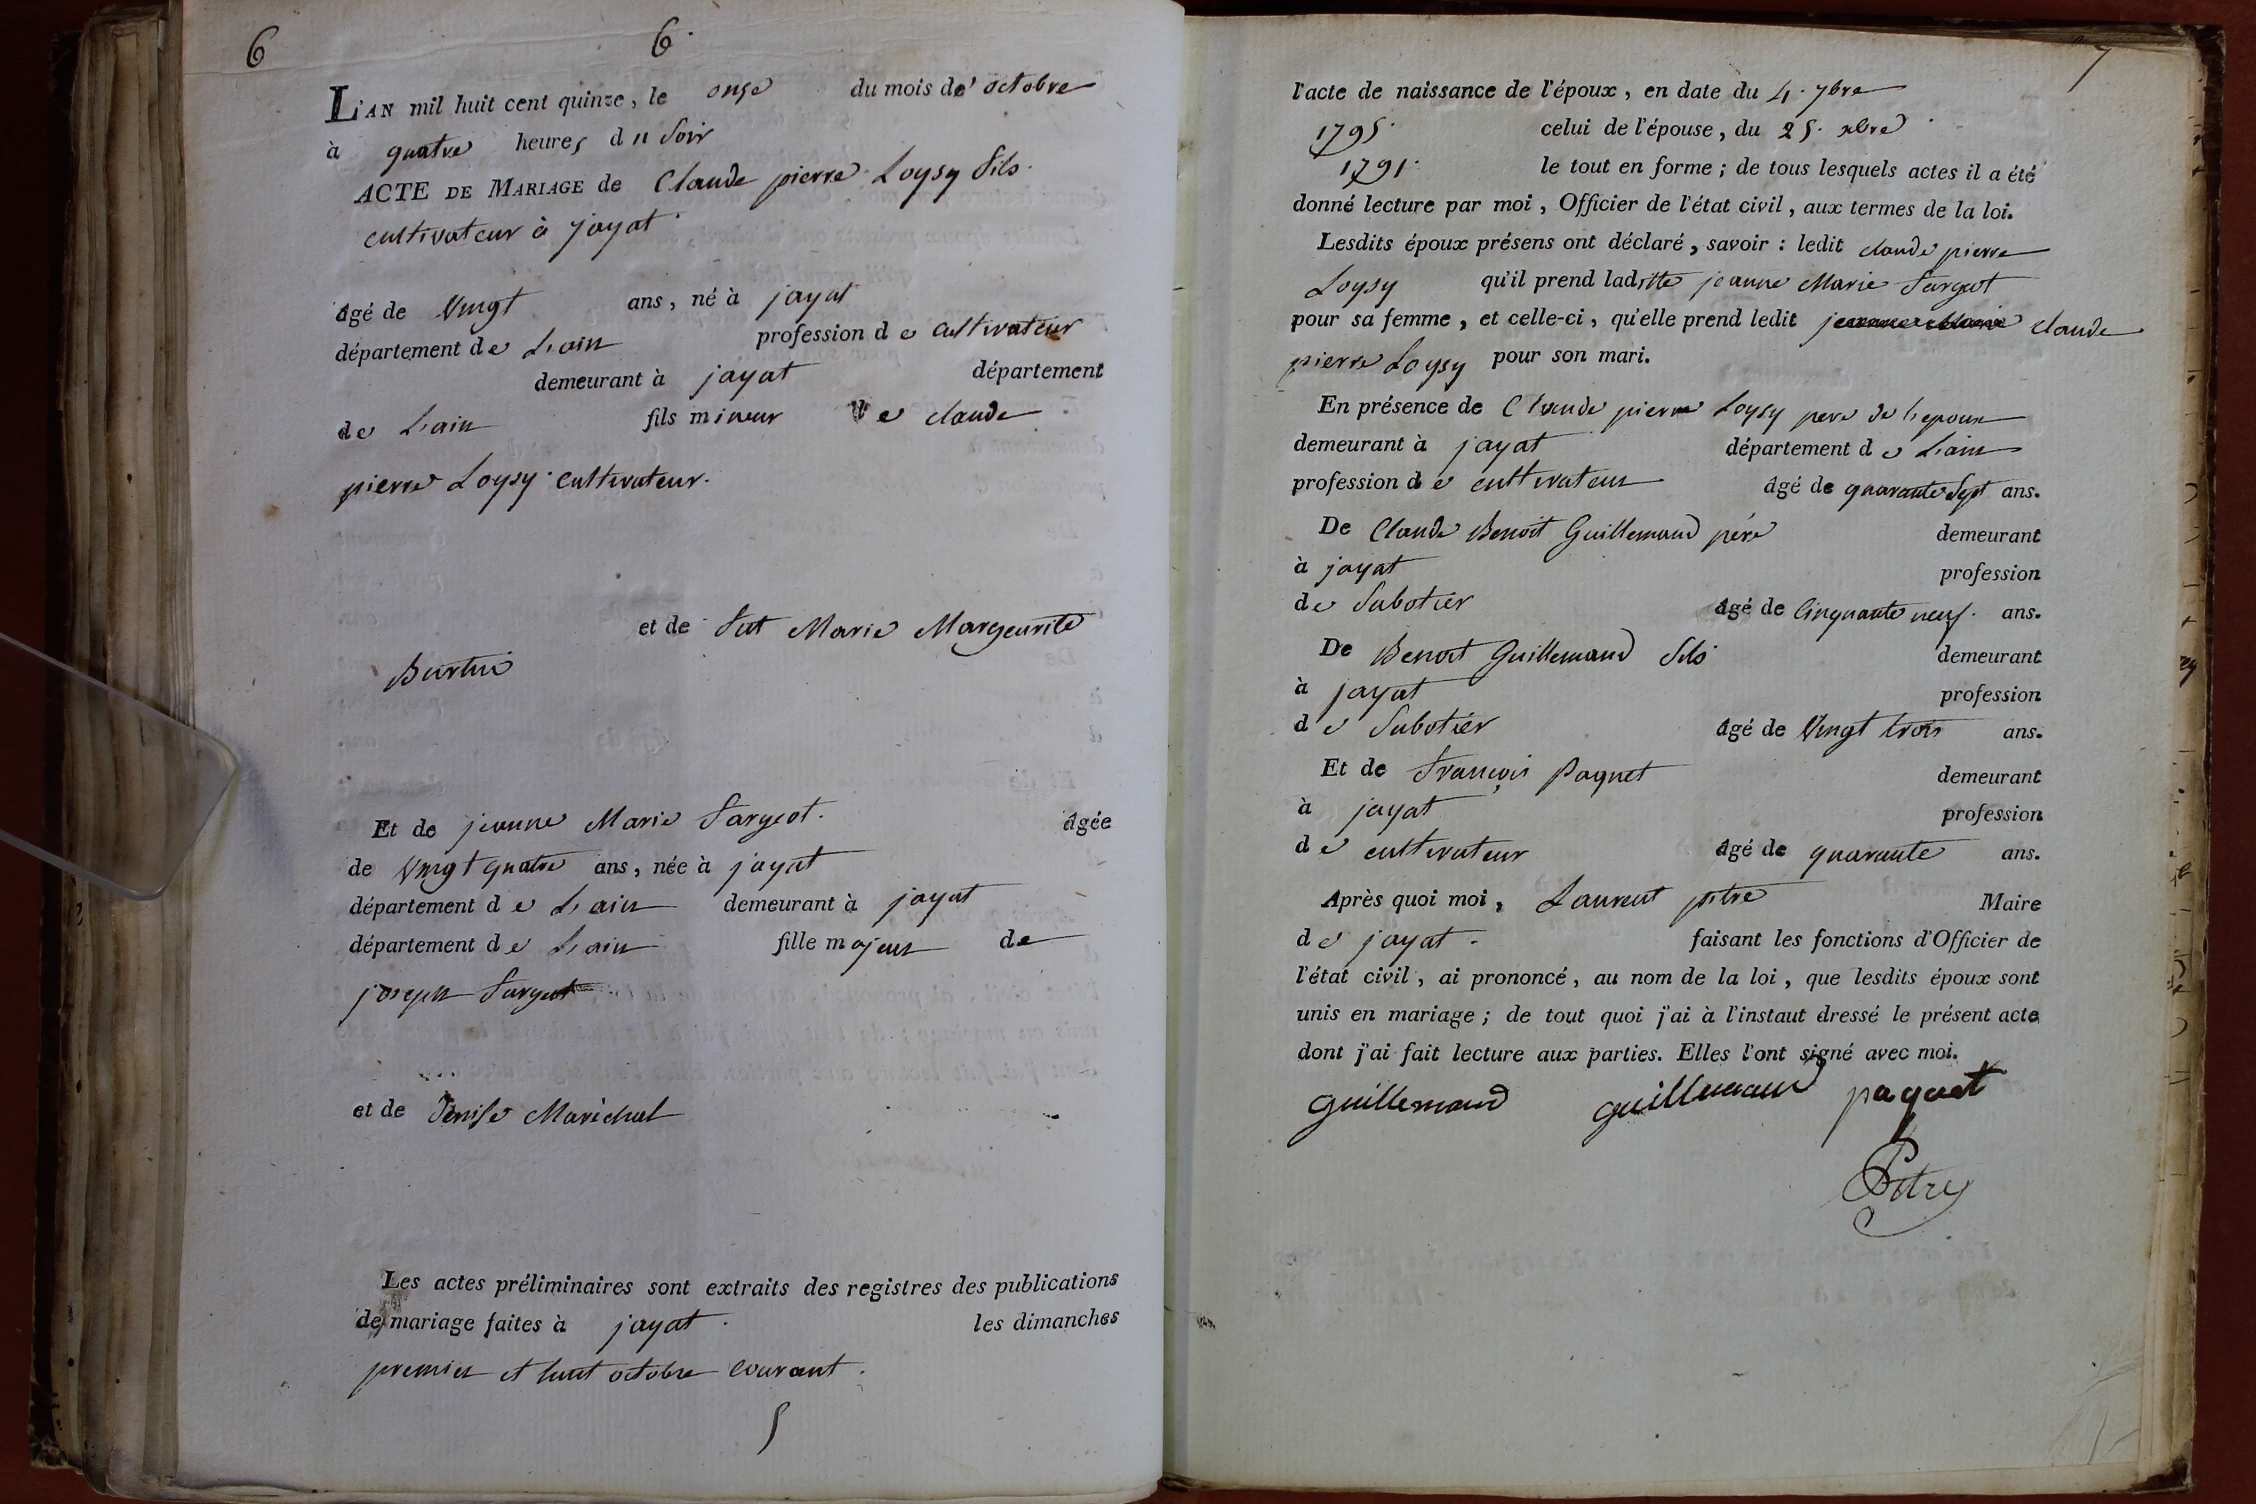 6
6.
L'AN mil huit cent quinze, le onze du mois de octobre
à quatre heures du Soir
ACTE DE MARIAGE de Claude pierre Loysy fils.
cultivateur à jayat.
âgé de Vingt ans, né à jayat
département de L'ain profession de cultivateur
demeurant à jayat département
de L'ain fils mineur de claude
pierre Loysy cultivateur.
et de fut Marie Margeurite
Et de jeanne Marie Sargeot. âgée
de Vingt quatre ans, née à jayat
département de L'ain demeurant à jayat
département de L'ain fille majeur de
joseph
et de Denise Maréchal
Les actes préliminaires sont extraits des registres des publications
de mariage faites à jayat. les dimanches
premier et huit octobre courant.
7
l'acte de naissance de l'époux, en date du 4. 7bre
1795. celui de l'épouse, du 25. xbre
1791. le tout en forme; de tous lesquels actes il a été
donné lecture par moi, Officier de l'état civil, aux termes de la loi.
Lesdits époux présens ont déclaré, savoir: ledit claude pierre
Loysy qu'il prend laditte jeanne Marie
pour sa femme, et celle-ci, qu'elle prend ledit claude
pierre Loysy pour son mari.
En présence de Claude pierre Loysy pere de l'epoux
demeurant à jayat département de L'ain
profession de cultivateur âgé de quarante Sept ans.
De Claude Benoit Guillemaud pére demeurant
à jayat profession
de Sabotier âgé de Cinquante neuf. ans.
De Benoit Guillemaud fils demeurant
à jayat profession
de Sabotier âgé de Vingt trois ans.
Et de françois Paquet demeurant
à jayat profession
de cultivateur âgé de quarante ans.
Après quoi moi, Laurent pitre Maire
de jayat. faisant les fonctions d'Officier de
l'état civil, ai prononcé, au nom de la loi, que lesdits époux sont
unis en mariage; de tout quoi j'ai à l'instaut dressé le présent acte
dont j'ai fait lecture aux parties. Elles l'ont signé avec moi.
Guillemaud guillemaud paquet
Pitre